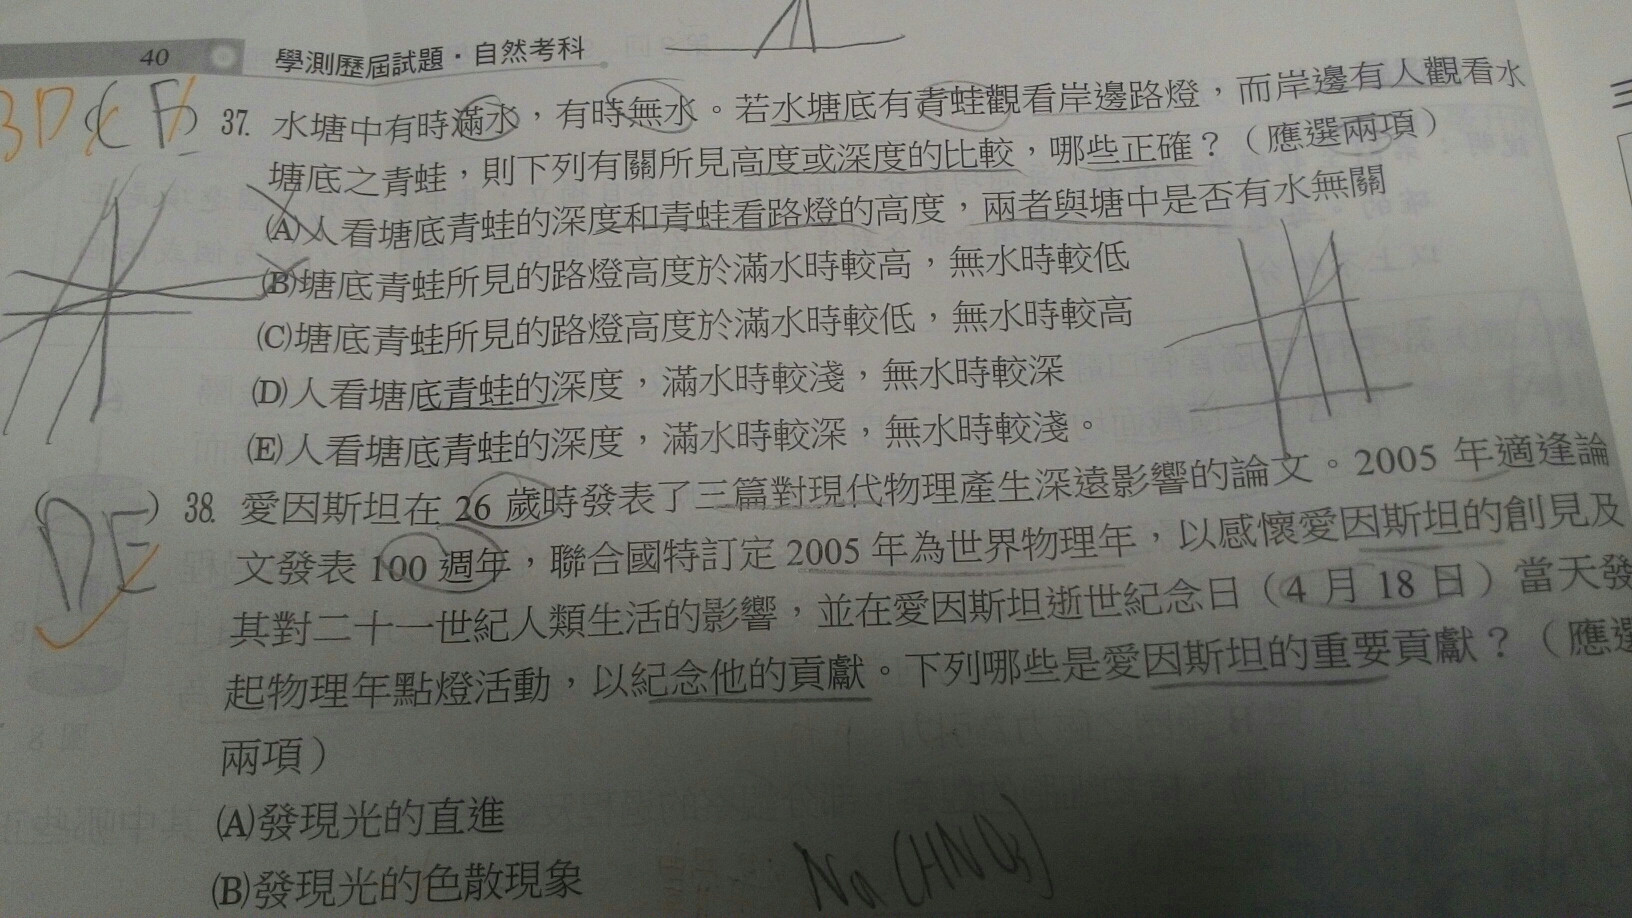 40 學測歷屆試題・自然考科
BD (CE) 37. 水塘中有時滿水，有時無水。若水塘底有青蛙觀看岸邊路燈，而岸邊有人觀看水
塘底之青蛙，則下列有關所見高度或深度的比較，哪些正確？（應選兩項）
(A)人看塘底青蛙的深度和青蛙看路燈的高度，兩者與塘中是否有水無關
(B)塘底青蛙所見的路燈高度於滿水時較高，無水時較低
(C)塘底青蛙所見的路燈高度於滿水時較低，無水時較高
(D)人看塘底青蛙的深度，滿水時較淺，無水時較深
(E)人看塘底青蛙的深度，滿水時較深，無水時較淺。
(DE) 38. 愛因斯坦在 26 歲時發表了三篇對現代物理產生深遠影響的論文。2005 年適逢論
文發表 100 週年，聯合國特訂定 2005 年為世界物理年，以感懷愛因斯坦的創見及
其對二十一世紀人類生活的影響，並在愛因斯坦逝世紀念日（4 月 18 日）當天發
起物理年點燈活動，以紀念他的貢獻。下列哪些是愛因斯坦的重要貢獻？（應選
兩項）
(A)發現光的直進
(B)發現光的色散現象
Na(HNO3)